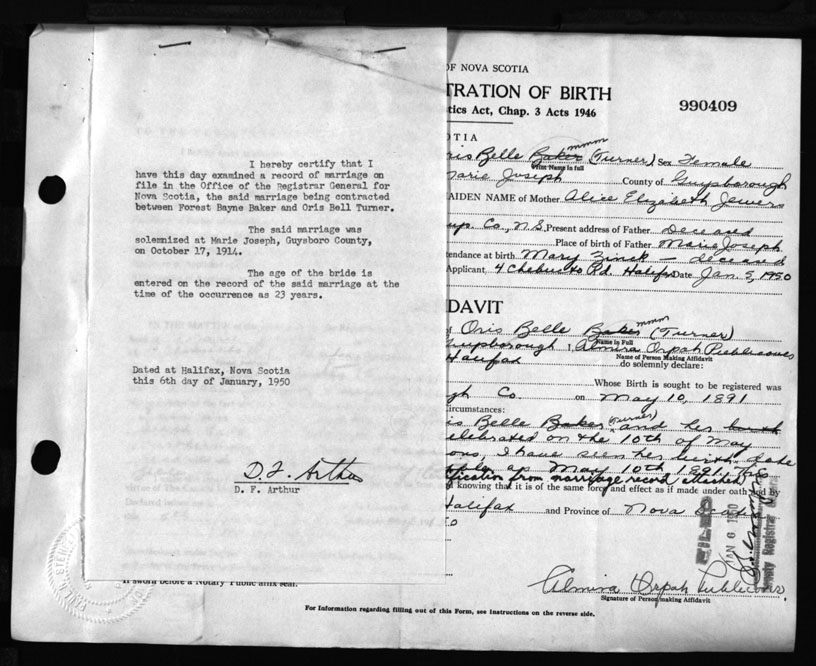 I hereby certify that I
have this day examined a record of marriage on
file in the Office of the Registrar General for
Nova Scotia, the said marriage being contracted
between Forest Bayne Baker and Oris Bell Turner.
The said marriage was
solemnized at Marie Joseph, Guysboro County,
on October 17, 1914.
The age of the bride is
entered on the record of the said marriage at the
time of the occurrence as 23 years.
Dated at Halifax, Nova Scotia
this 6th day of January, 1950
D. F. Arthur
D. F. Arthur
OF NOVA SCOTIA
TRATION OF BIRTH
tics Act, Chap. 3 Acts 1946
990409
OTIA
ris Belle Baker (Turner) Sex Female
Print Name in full
Marie Joseph County of Guysborough
AIDEN NAME of Mother Alice Elizabeth Jewers
Co., N.S. Present address of Father Deceased
Place of birth of Father Marie Joseph
tendance at birth Mary Zinck — deceased
Applicant 4 Chebucto Rd. Halifax Date Jan. 5, 1950
DAVIT
of Oris Belle Baker (Turner)
Name in Full
Guysborough, Almira Orpah Publicover
Name of Person Making Affidavit
Halifax do solemnly declare:
Whose Birth is sought to be registered was
gh Co. on May 10, 1891
ircumstances:
is Belle Baker (Turner) and her birth
elebrated on the 10th of May
ons, I have seen her birth date
as May 10th 1891. This
fication from marriage record attached
d knowing that it is of the same force and effect as if made under oath and by
Halifax and Province of Nova Scotia
50
FILED
JAN 6 1950
Deputy Registrar
Almira Orpah Publicover
Signature of Person making Affidavit
If sworn before a Notary Public affix seal.
For Information regarding filling out of this Form, see Instructions on the reverse side.